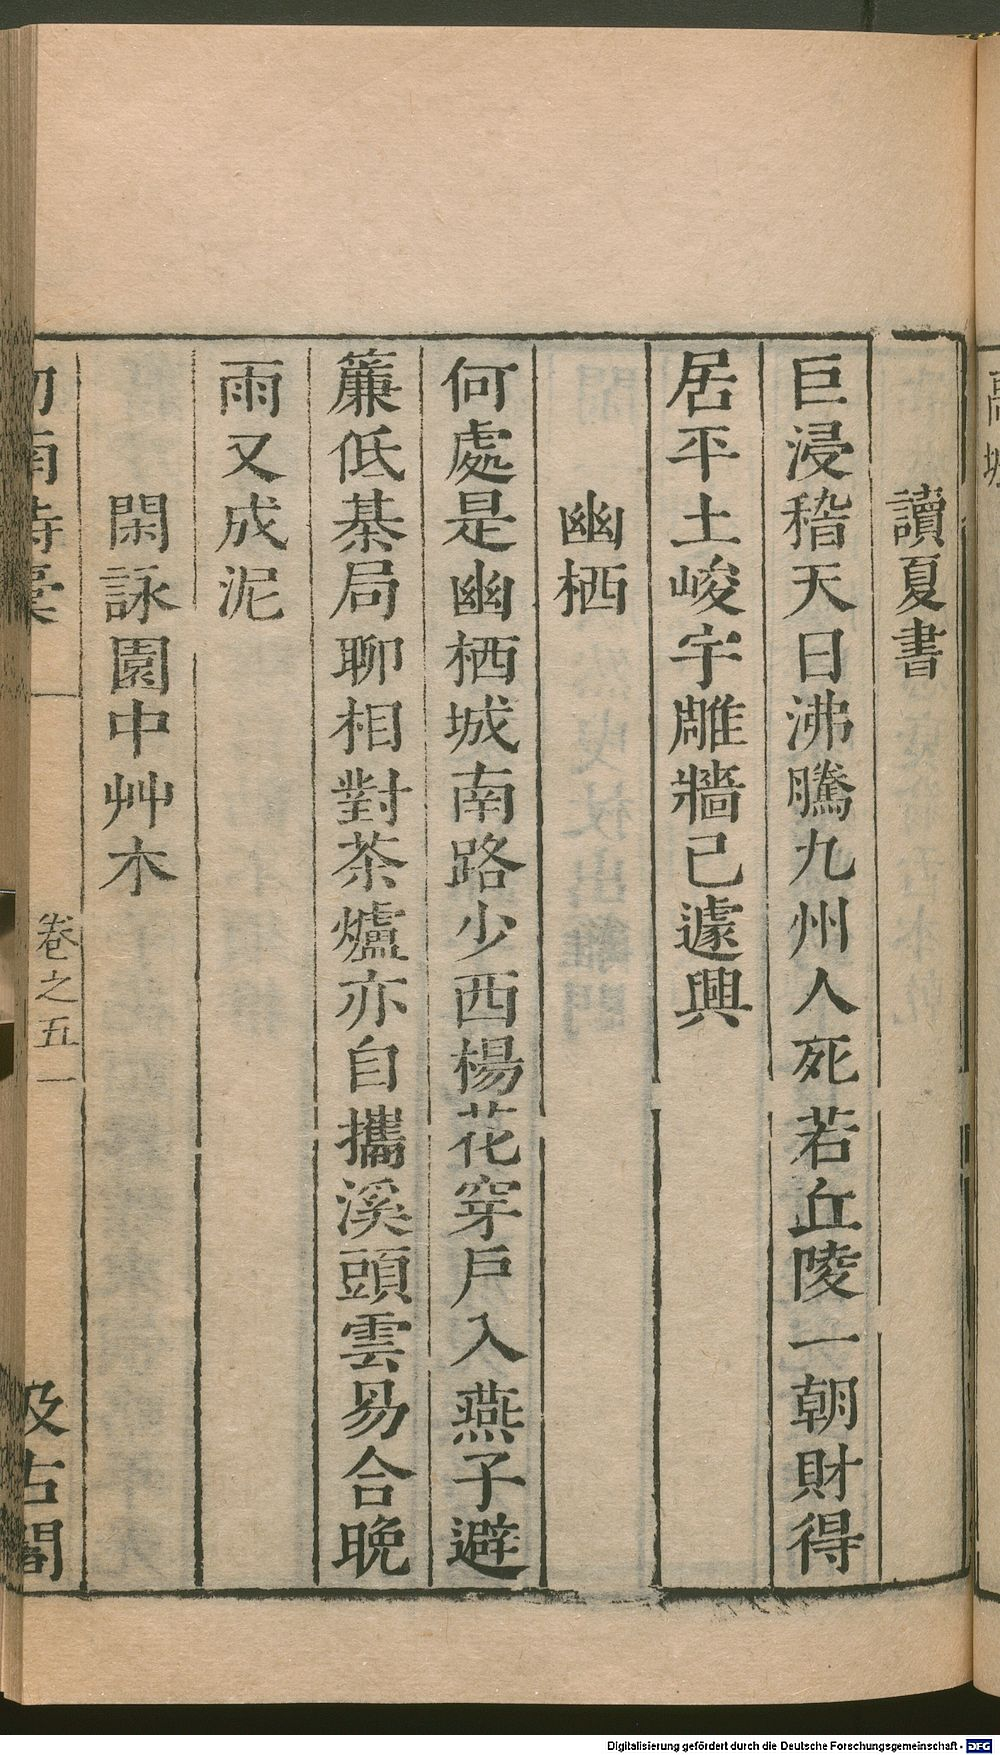 讀夏書
巨浸稽天日沸騰九州人死若丘陵一朝財得
居平土峻宇雕牆已遽興
幽栖
何處是幽栖城南路少西楊花穿戶入燕子避
簾低棊局聊相對茶爐亦自攜溪頭雲易合晚
雨又成泥
閑詠園中艸木
卷之五 一
汲古閣
Digitalisierung gefördert durch die Deutsche Forschungsgemeinschaft - DFG